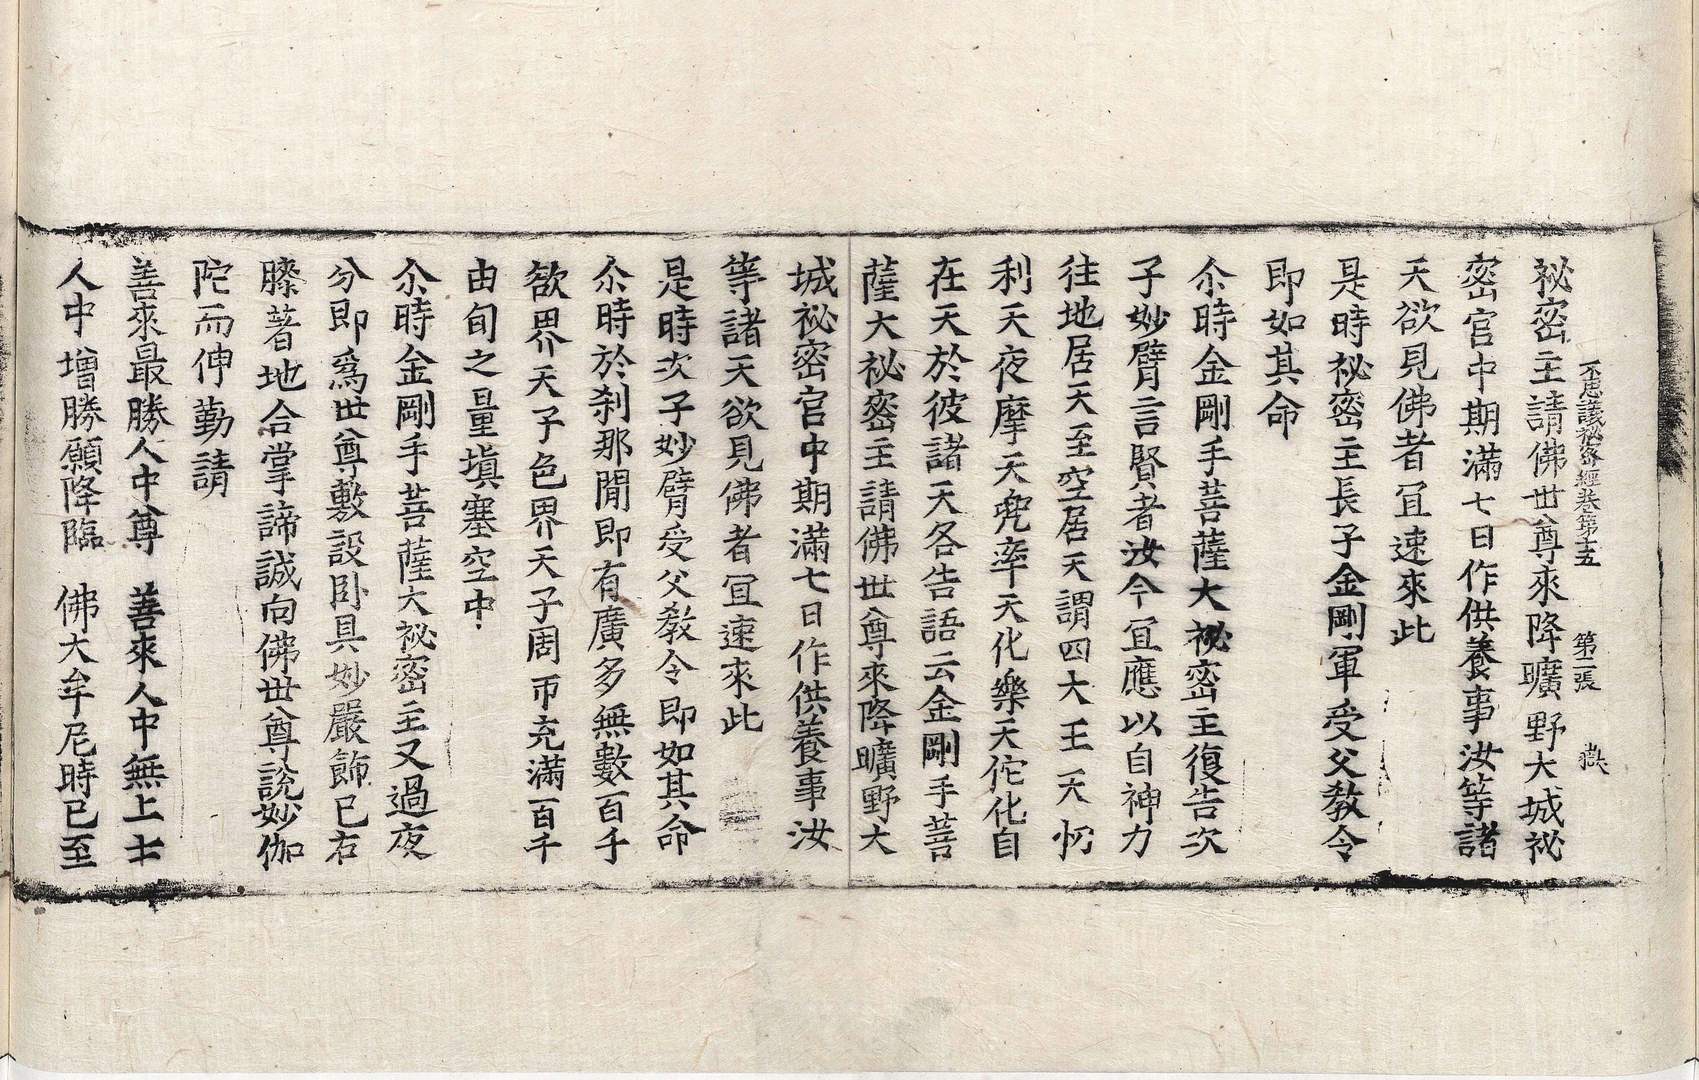 不思議秘密經卷第十五　第二張　嶽
祕密主請佛世尊來降曠野大城祕
密宮中期滿七日作供養事汝等諸
天欲見佛者宜速來此
是時祕密主長子金剛軍受父教令
即如其命
尒時金剛手菩薩大祕密主復告次
子妙臂言賢者汝今宜應以自神力
往地居天至空居天謂四大王天忉
利天夜摩天兜率天化樂天佗化自
在天於彼諸天各告語云金剛手菩
薩大祕密主請佛世尊來降曠野大
城祕密宮中期滿七日作供養事汝
等諸天欲見佛者宜速來此
是時次子妙臂受父教令即如其命
尒時於刹那閒即有廣多無數百千
欲界天子色界天子周帀充滿百千
由旬之量塡塞空中
尒時金剛手菩薩大祕密主又過夜
分即爲世尊敷設卧具妙嚴飾已右
膝著地合掌諦誠向佛世尊說妙伽
陀而伸勤請
善來最勝人中尊　善來人中無上士
人中增勝願降臨　佛大牟尼時已至